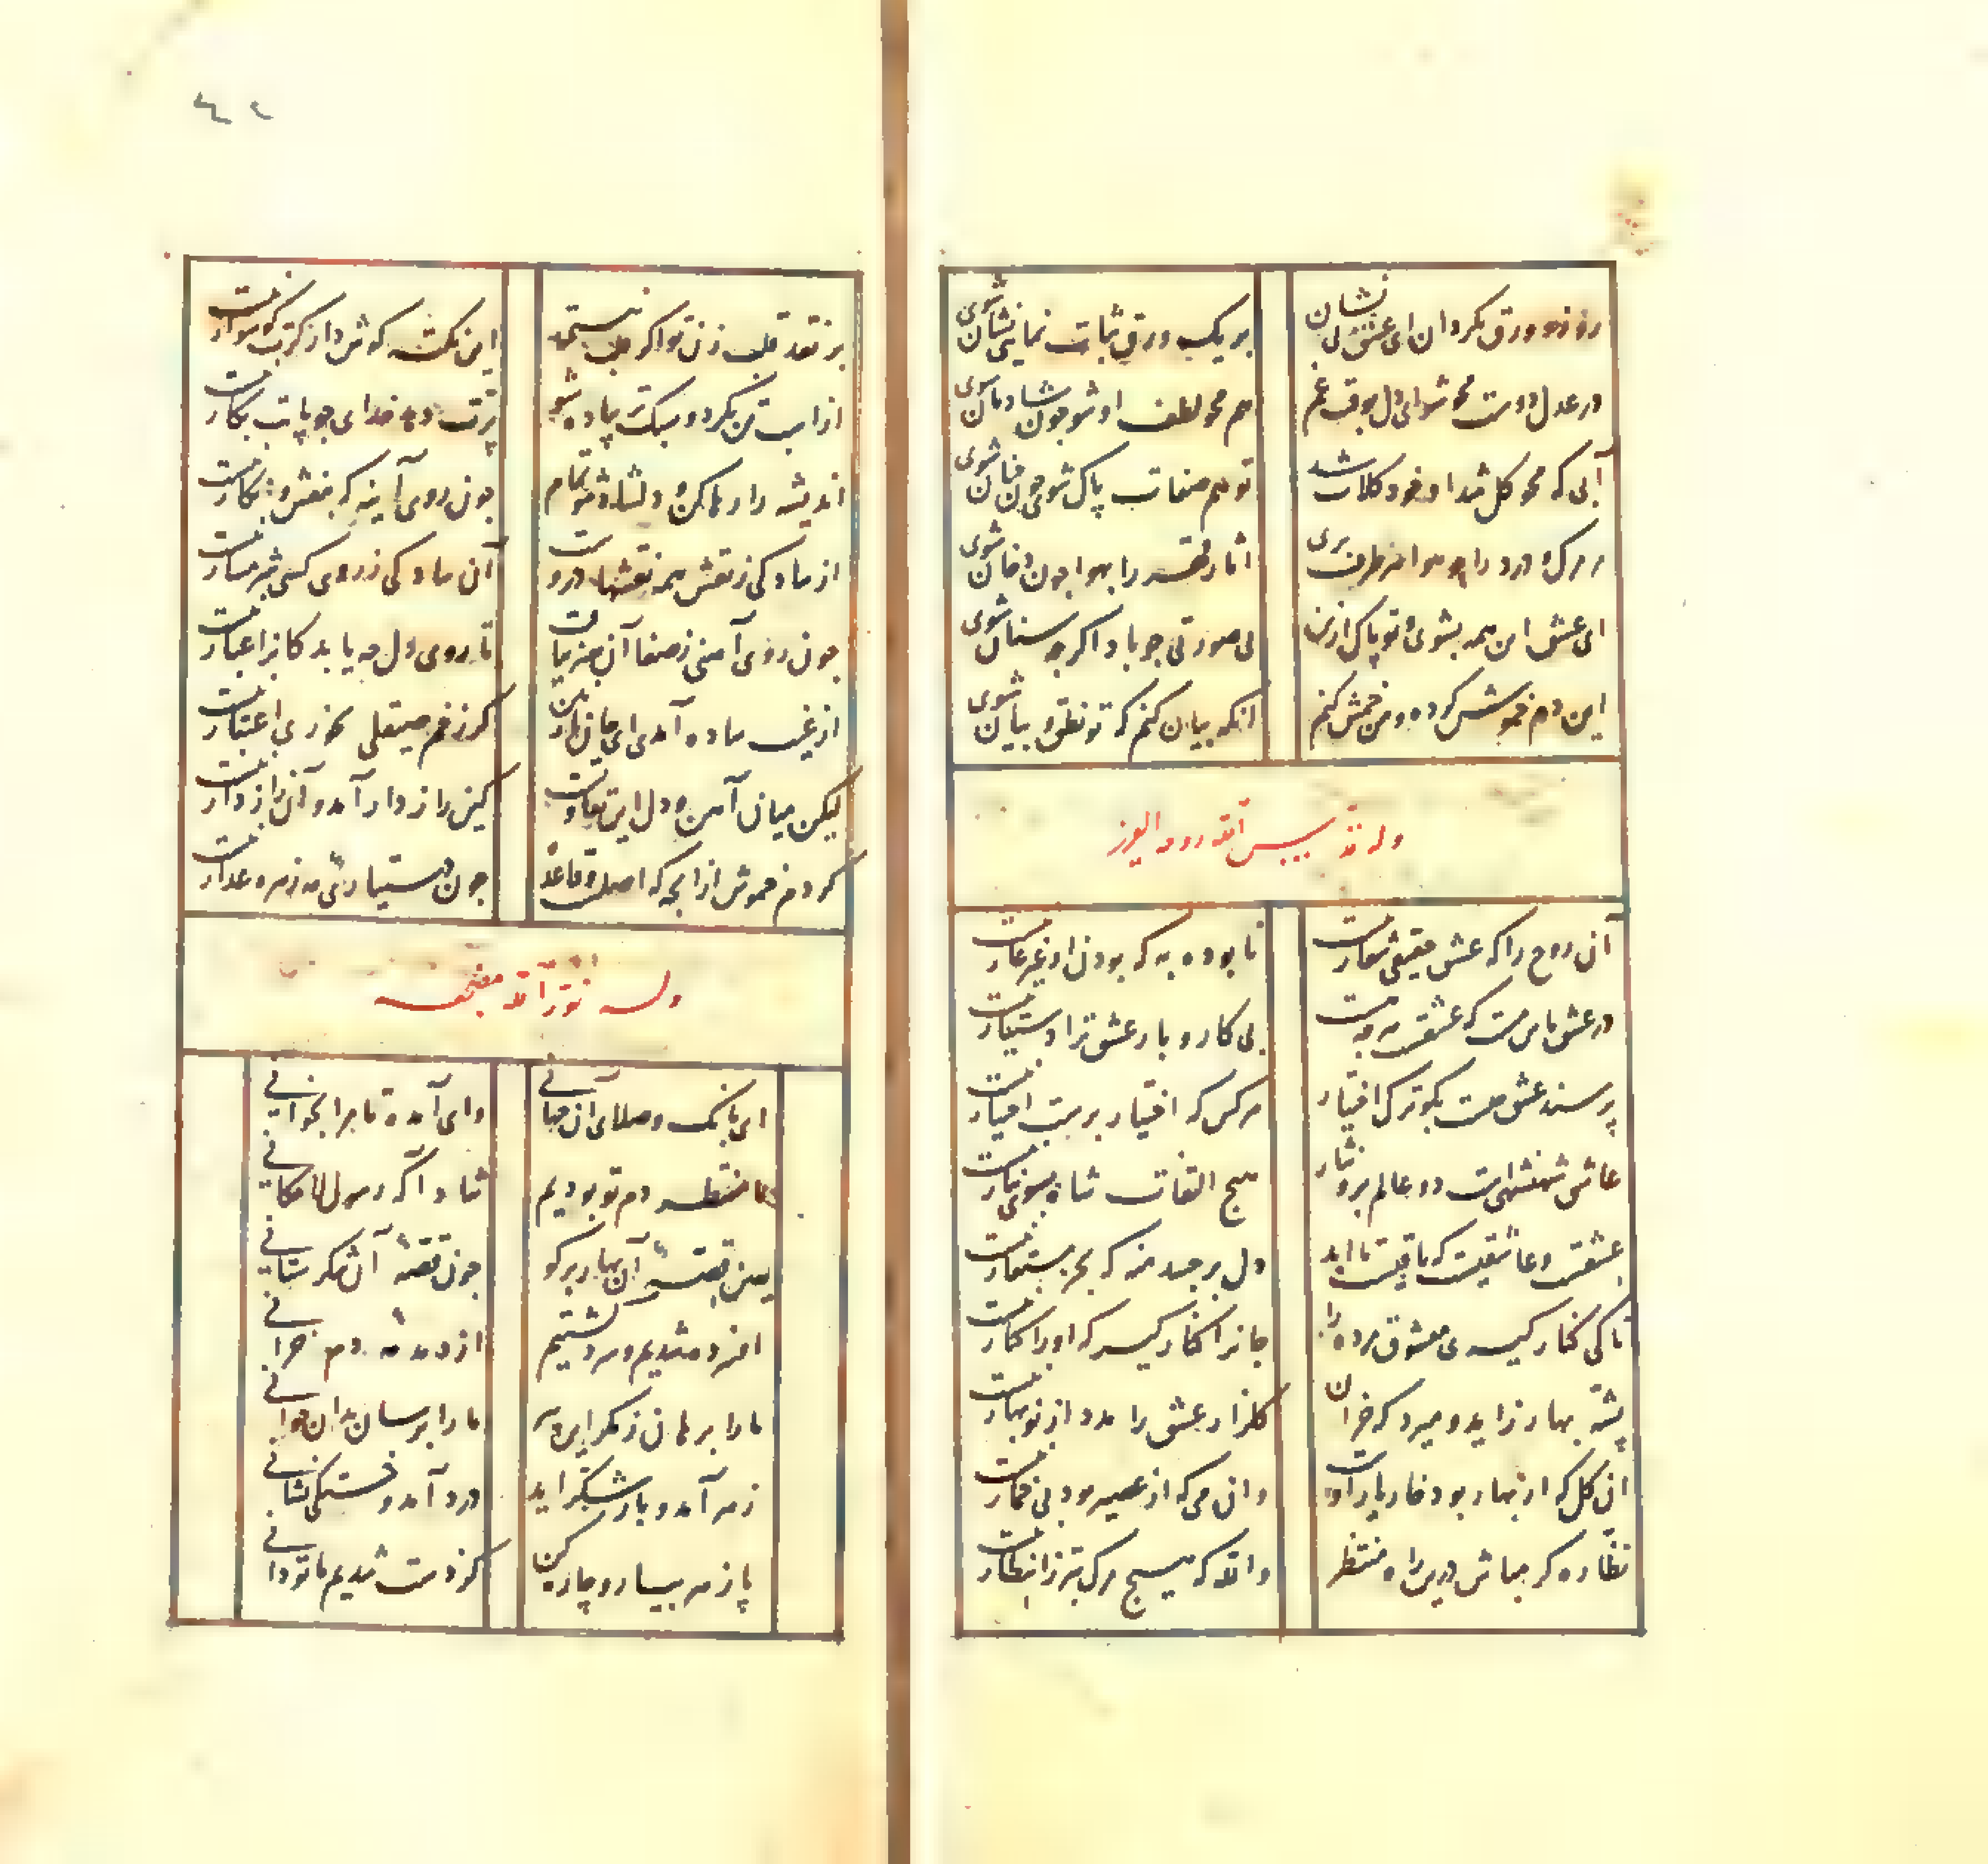 رو زو دو ورق بگردان ای عشق بی نشان بر یک ورق ثبات نمایی نشان شوی
در عدل دوست محو شو ای دل بوقت غم هم محو لطف او شو جون شادمان شوی
آبی که محو کل شد او خود کلاب شد تو هم صفات پاک شو جون جان شوی
را بهوا جون دخان شوی
ای عشق این همه بشوی و تو پاک ازین بی صورتی جو باد اکرجه سنان شوی
این دم خموش کرده و من خمش کنم انکه بیان کنم که تو نطق و بیان شوی
وله قدس الله روحه العزیز
آن روح را که عشق حقیقی شعار نیست نابوده به که بودن او غیر عار نیست
در عشق باش مست که عشقست هر چه هست بی کار و بار عشق ترا دست یار نیست
پرسند عشق جیست بکو ترک اختیار هر کس که اختیار نرست اختیار نیست
عاشق شهنشهیست دو عالم برو نثار هیج التفات شاه بسوی نثار نیست
عشقست و عاشقیست که باقیست تا ابد دل بر جزین منه که بجز مستعار نیست
تا کی کنار کیری معشوق مرده را جانرا کنار کیر که او را کنار نیست
پشته بهار زاید و میرد که خزان کلزار عشق را مدد از نوبهار نیست
ان کل که از بهار بود خار یار اوست وان می که از عصیر بود بی خمار نیست
نظاره کر مباش درین راه منتظر والله که هیج مرک بتر ز انتظار نیست
بر نقد قلب زن تو اکر قلب نیستی این نکته کوش دار کرت کوشوار نیست
از اسب تن بکرد و سبکتر پیاده شو پرت دهد خدای جو پایت بکار نیست
اندیشه را رها کن و دلشاد شو تمام جون روی آینه که بنقش و نکار نیست
از ساده کی ز نقش همه نقشها دروست آن ساده کی ز روی کسی شرمسار نیست
جون روی آهنی ز صفا آن هنر بیافت تا روی دل چه یابد کانرا غبار نیست
لیکن میان آهن و دل این تفاوتست کین راز دار آمد و آن رازدار نیست
کردم خموش ازانجه که اصلست و قاعده
وله نور الله مضجعه
ای بانک و صلای آن جهانی وای آمده تا مرا بخوانی
ما منتظر دم تو بودیم شاد آ که رسول لامکانی
هین قصه آن بهار برکو جون قصه آن شکرستانی
افسرده شدیم و سرد کشتیم از دمدمه دم خزانی
ما را برهان ز مکر این پیر ما را برسان بدان جوانی
زهر آمد و بار شکر اید درد آمد و خستکی نشانی
پا زهر بیار و چاره کن کز دست شدیم تا تو دانی